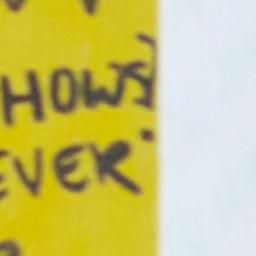 HOWS]
EVER"